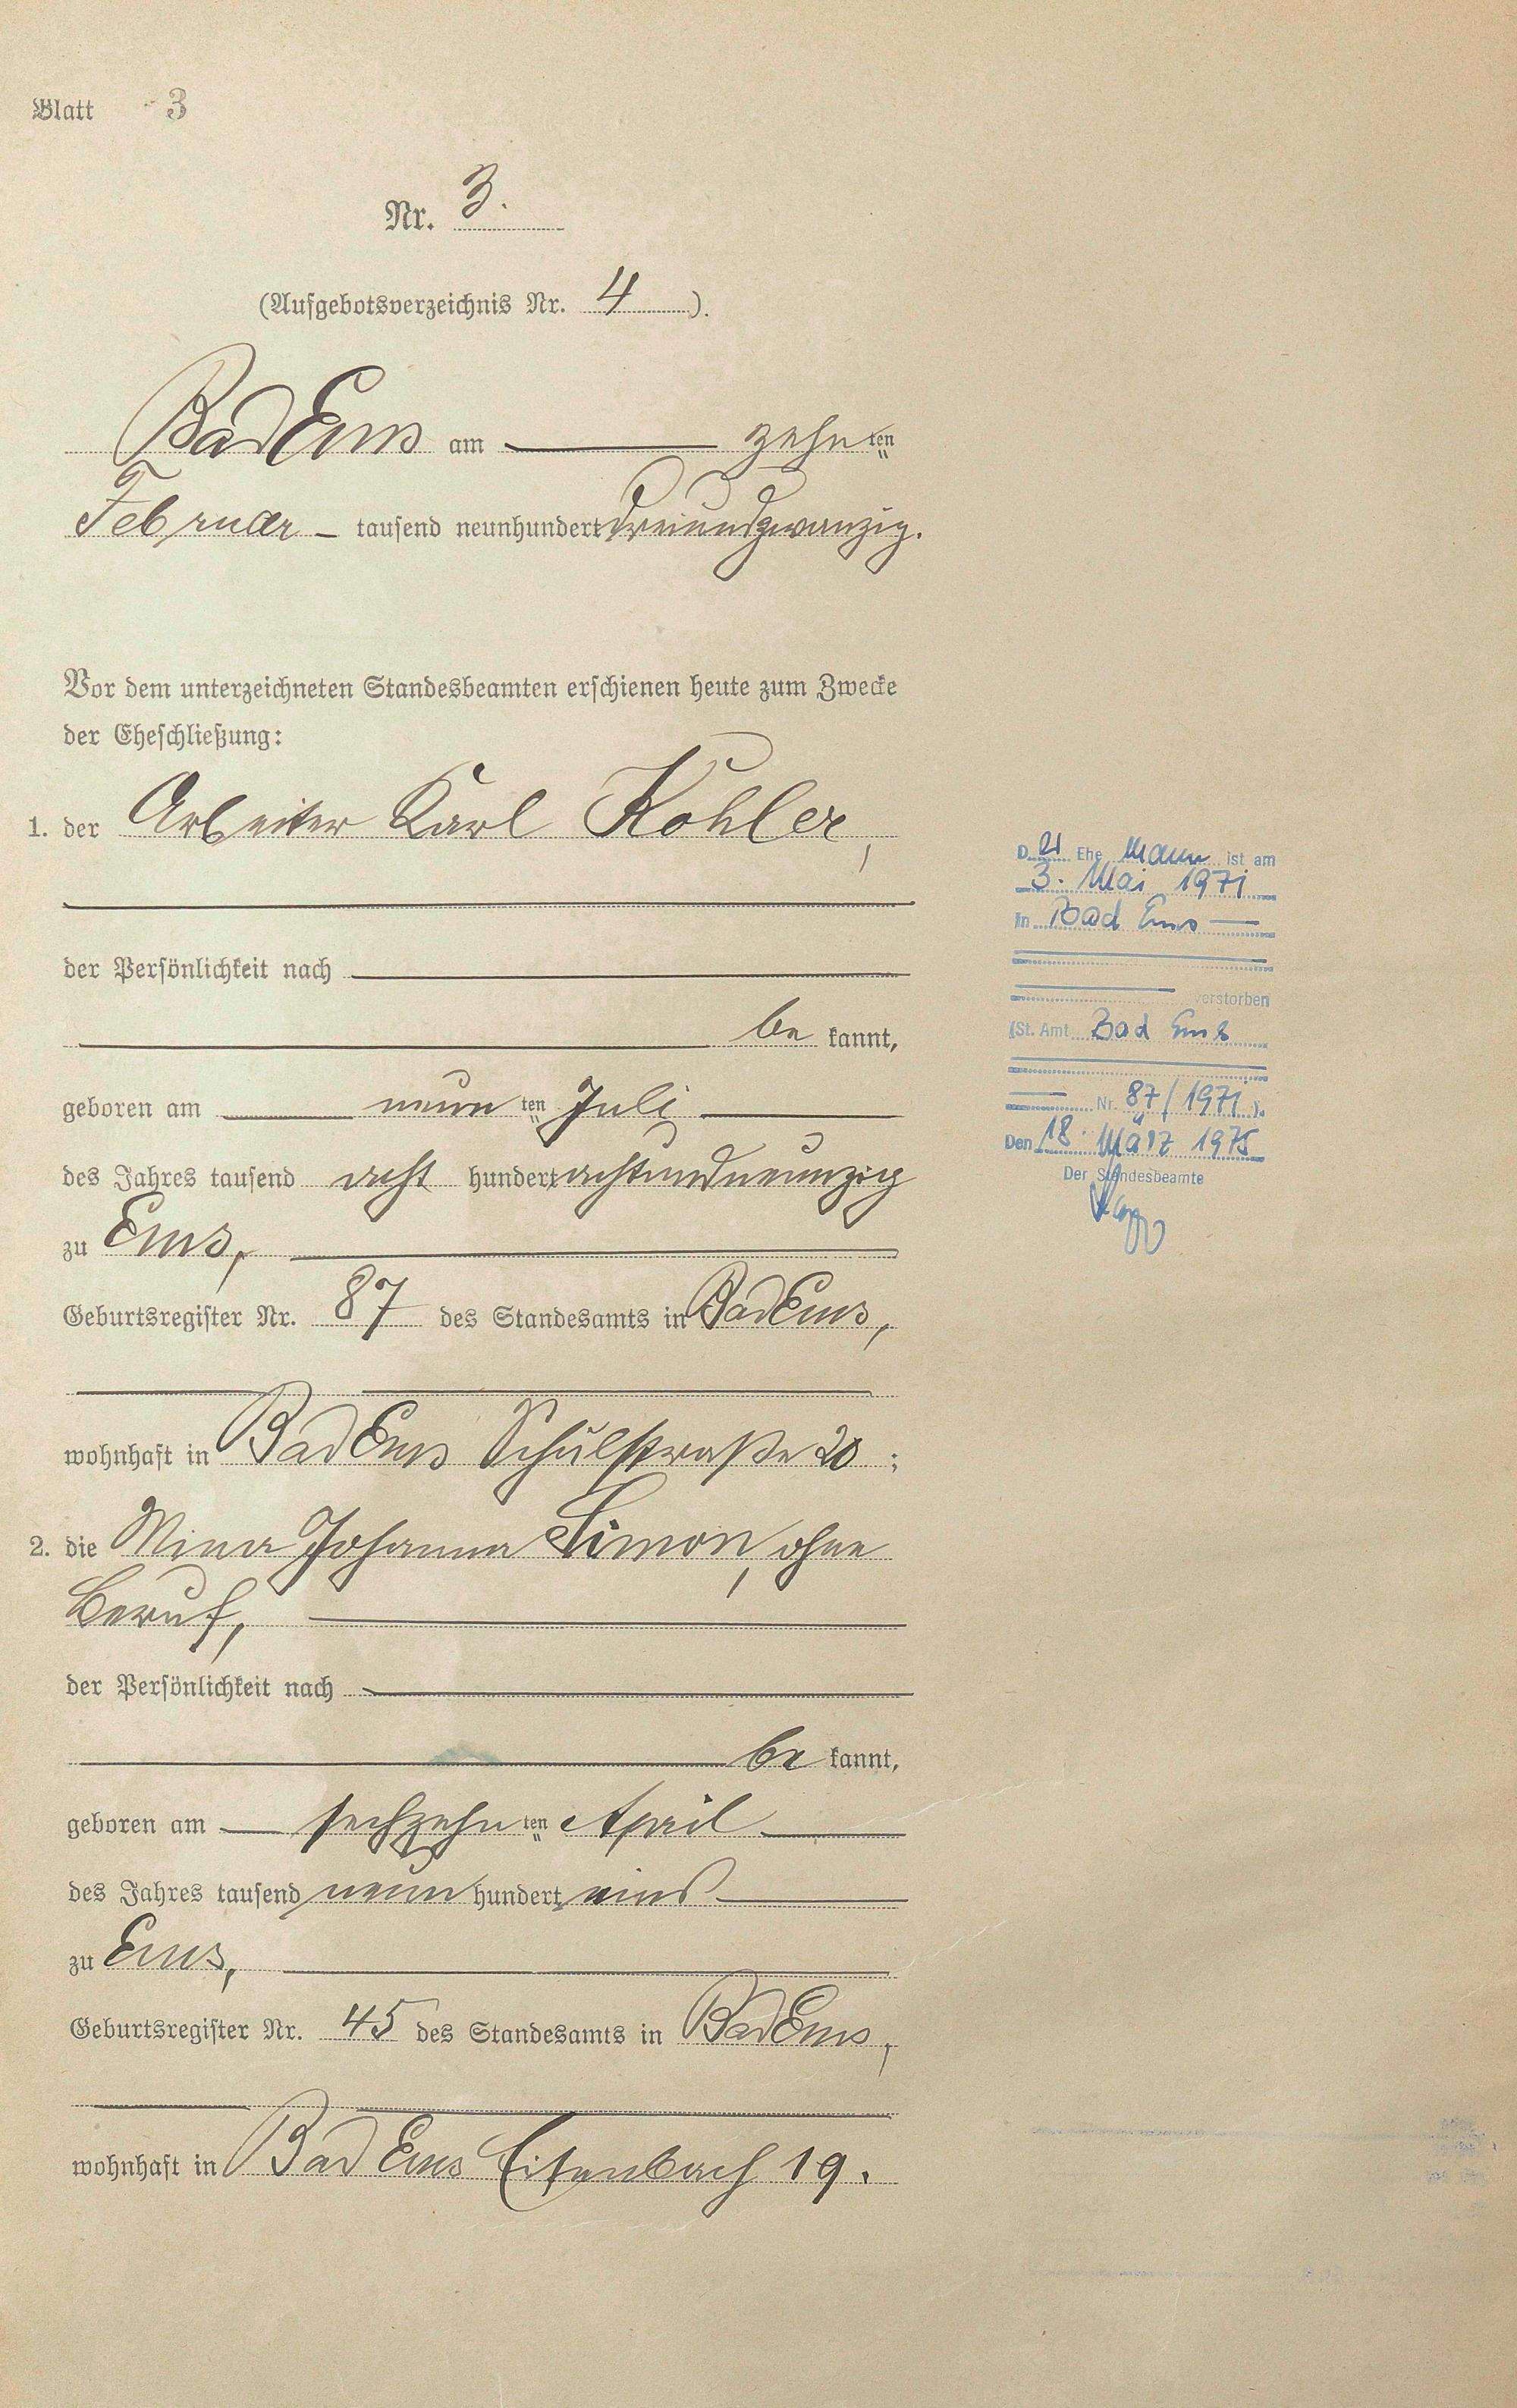 Blatt 3
Nr. 3.
(Aufgebotsverzeichnis Nr. 4).
Bad Ems am zehnten
Februar – tausend neunhundert dreiundzwanzig.
Vor dem unterzeichneten Standesbeamten erschienen heute zum Zwecke
der Eheschließung:
1. der Arbeiter Karl Kohler,
der Persönlichkeit nach
be kannt,
geboren am neunten Juli
des Jahres tausend acht hundert achtundneunzig
zu Ems,
Geburtsregister Nr. 87 des Standesamts in Bad Ems,
wohnhaft in Bad Ems Schulstraße 20;
2. die Mina Johanna Simon, ohne
Beruf,
der Persönlichkeit nach
be kannt,
geboren am sechzehnten April
des Jahres tausend neun hundert eins
zu Ems,
Geburtsregister Nr. 45 des Standesamts in Bad Ems,
wohnhaft in Bad Ems 19.
D er Ehe Mann ist am
3. Mai 1971
in Bad Ems
verstorben
(St. Amt Bad Ems
Nr. 87/1971).
Den 18. März 1975
Der Standesbeamte